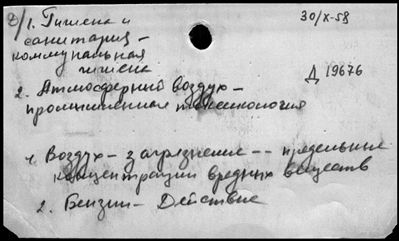 2/1. Гигиена и
санитария -
коммунальная
гигиена
30/X-58
Д 19676
2. Атмосферный воздух -
промышленная токсикология
1. Воздух - загрязнение -- предельные
концентрации вредных веществ
2. Бензин - Действие